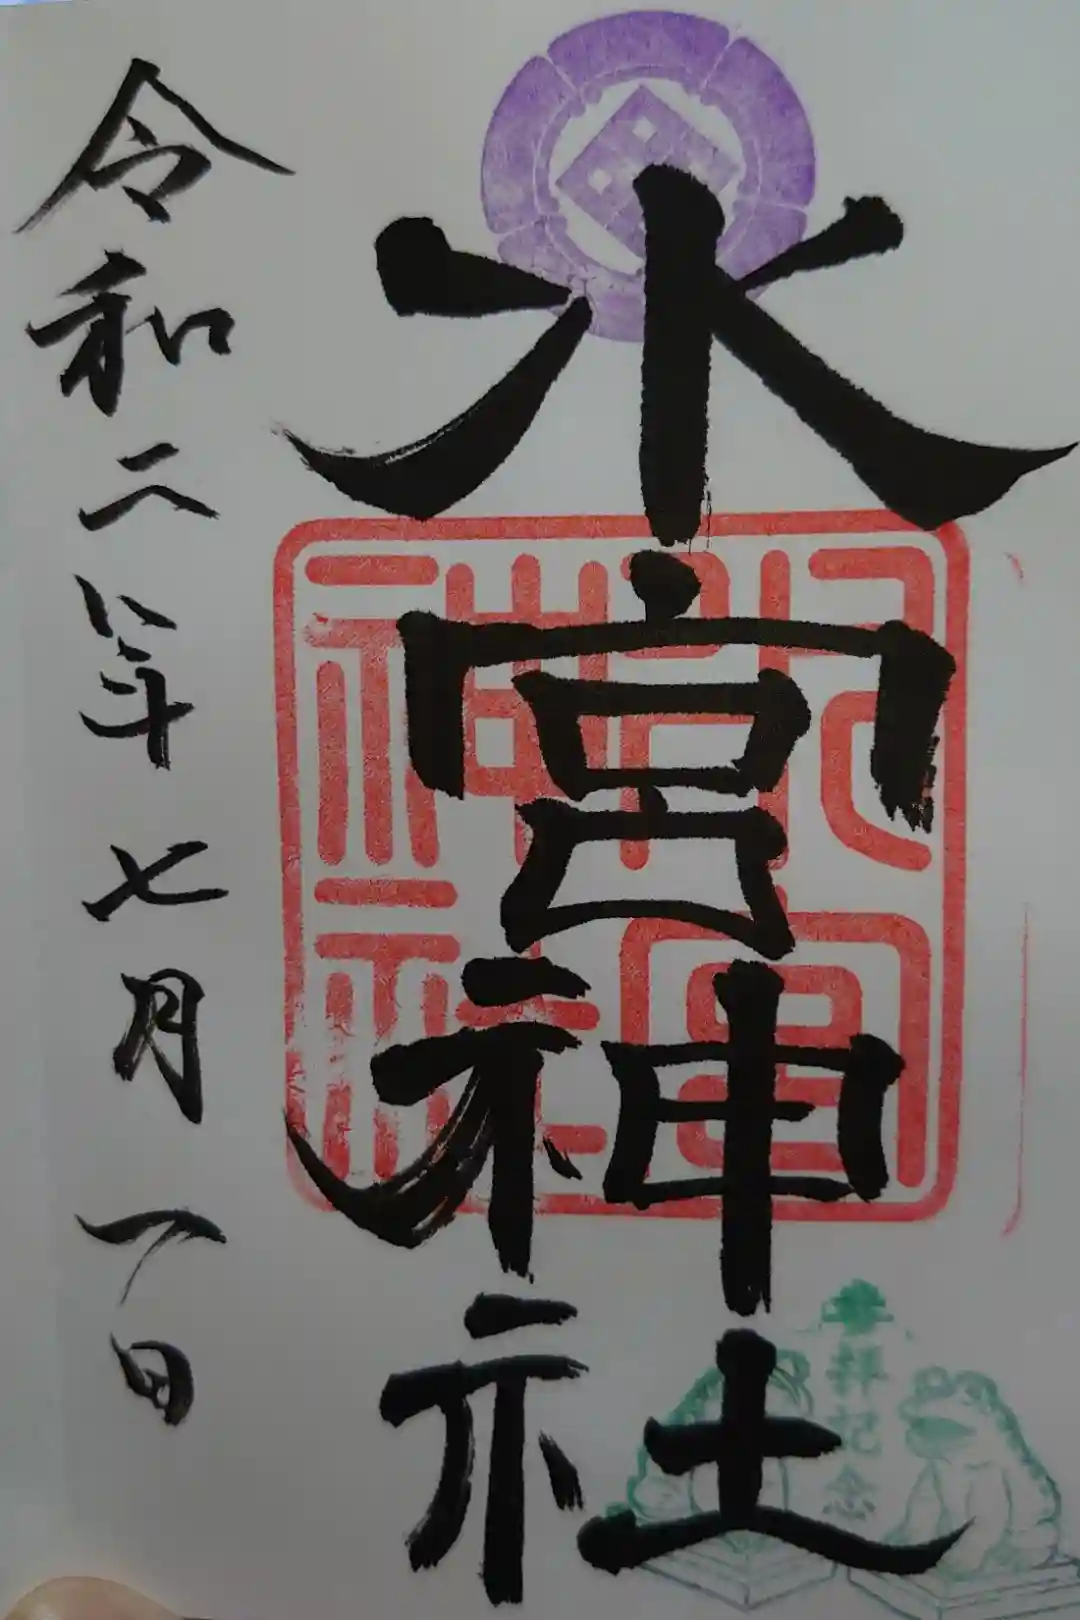 水宮神社
令和二年七月一日
水宮
神社
参拝記念